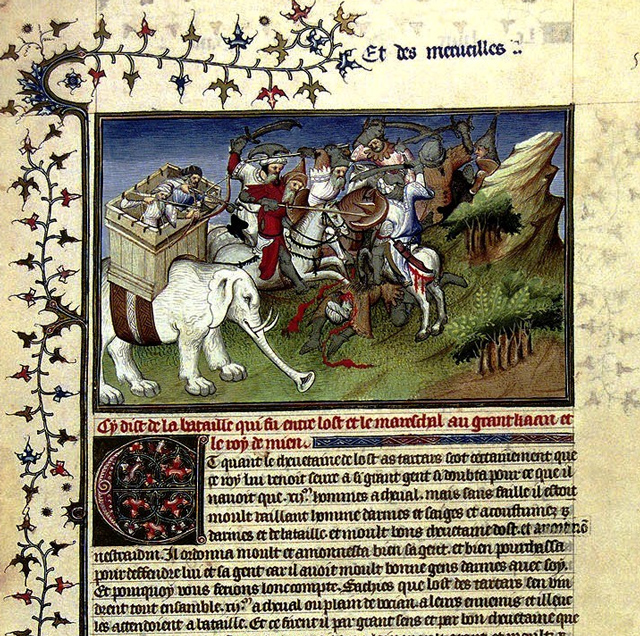 Et des merueilles
Cy dist de la bataille qui fu entre lost et le mareschal au grant kaan et
le roy de mien.
Et quant le cheuetaine de lost as tartars scot certainement que
ce roy lui venoit seure a si grant gent si doubta pour ce que il
nauoit que .xij.m hommes a cheual. mais sans faille il estoit
moult vaillant homme darmes et saiges et acoustumez
darmes et de bataille et moult bons cheuetaine dost. et
Il ordonna moult et amonnesta bien sa gent. et bien pourchassa
pour deffendre lui et sa gent car il auoit moult bonne gens darmes auec soy.
Et pourquoy vous feroie lonc compte. Sachies que lost des tartars sen vin
drent tout ensamble .xij.m a cheual ou plain de vocian. a leurs ennemis et illeuc
les attendoient a bataille. Et ce firent il par grant sens et par bon cheuetaine que